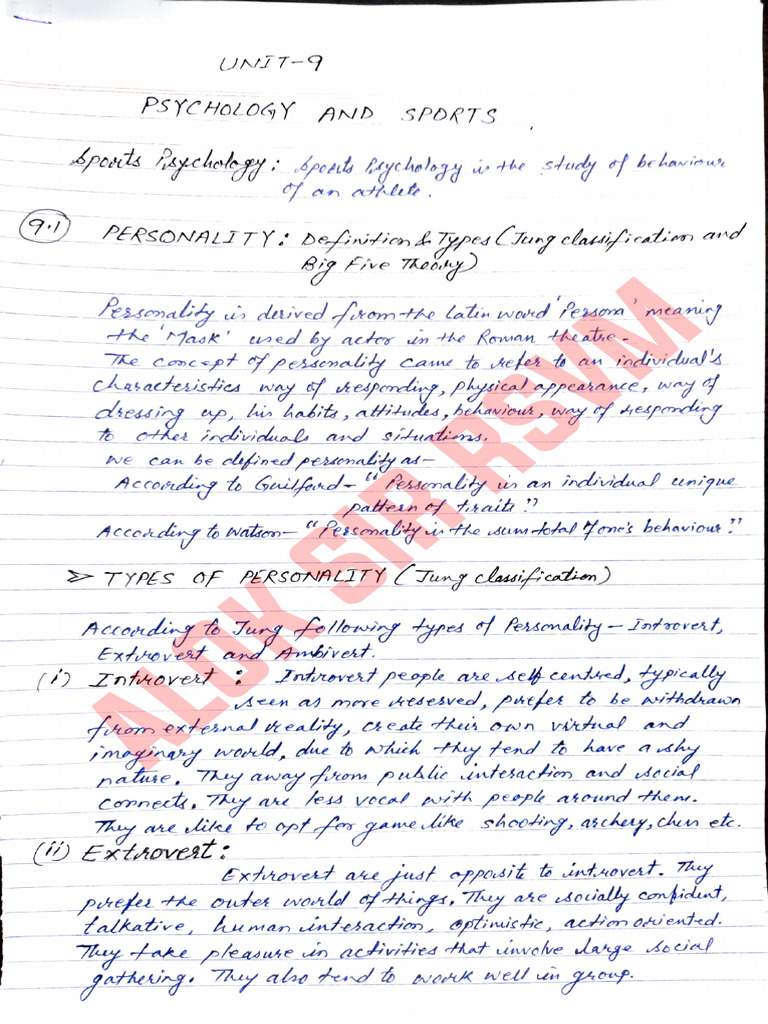 UNIT-9
PSYCHOLOGY AND SPORTS.
Sports Psychology: Sports Psychology is the study of behaviour
of an athlete.
9.1 PERSONALITY: Definition & Types (Jung classification and
Big Five Theory)
Personality is derived from the latin word 'Persona' meaning
the 'Mask' used by actor in the Roman theatre.
The concept of personality came to refer to an individual's
characteristics way of responding, physical appearance, way of
dressing up, his habits, attitudes, behaviour, way of responding
to other individuals and situations.
we can be defined personality as—
According to Guilford— "Personality is an individual unique
pattern of traits"
According to Watson— "Personality is the sum total of one's behaviour."
➢ TYPES OF PERSONALITY (Jung classification)
According to Jung following types of Personality— Introvert,
Extrovert and Ambivert.
(i) Introvert: Introvert people are self centred, typically
seen as more reserved, prefer to be withdrawn
from external reality, create their own virtual and
imaginary world, due to which they tend to have a shy
nature. They away from public interaction and social
connects. They are less vocal with people around them.
They are like to opt for game like shooting, archery, chess etc.
(ii) Extrovert:
Extrovert are just opposite to introvert. They
prefer the outer world of things. They are socially confident,
talkative, human interaction, optimistic, action oriented.
They take pleasure in activities that involve large social
gathering. They also tend to work well in group.
ALOK SIR RSVM